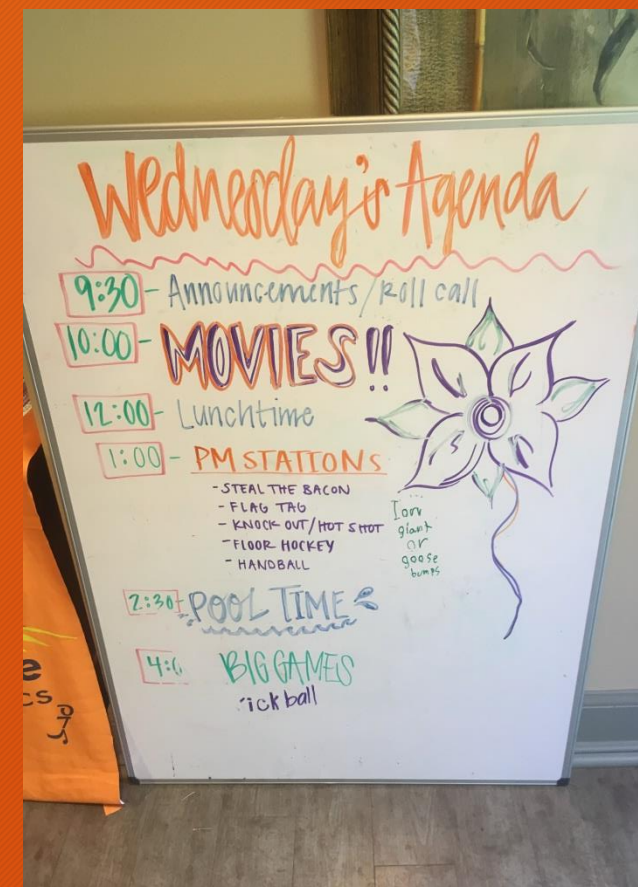 Wednesday's Agenda
9:30 - Announcements / Roll call
10:00 - MOVIES!!
12:00 - Lunchtime
1:00 - PM STATIONS
- STEAL THE BACON
- FLAG TAG
- KNOCK OUT / HOT SHOT
- FLOOR HOCKEY
- HANDBALL
Iron
giant
or
goose
bumps
2:30 - POOL TIME
BIG GAMES